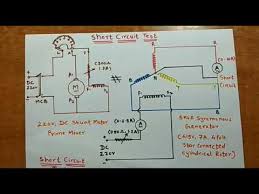 Short Circuit Test
R
A
(0-10A)
L
F
A
A1
F1
(300Ω,
1.7A)
M
A2
F2
DC
220V
MCB
N
B
Y
Short
Circuit
220V, DC Shunt Motor
Prime Mover
A
DC
220V
5KVA Synchronous
Generator
(415V, 7A, 4 Pole
Star Connected
Cylindrical Rotor)
Short Circuit